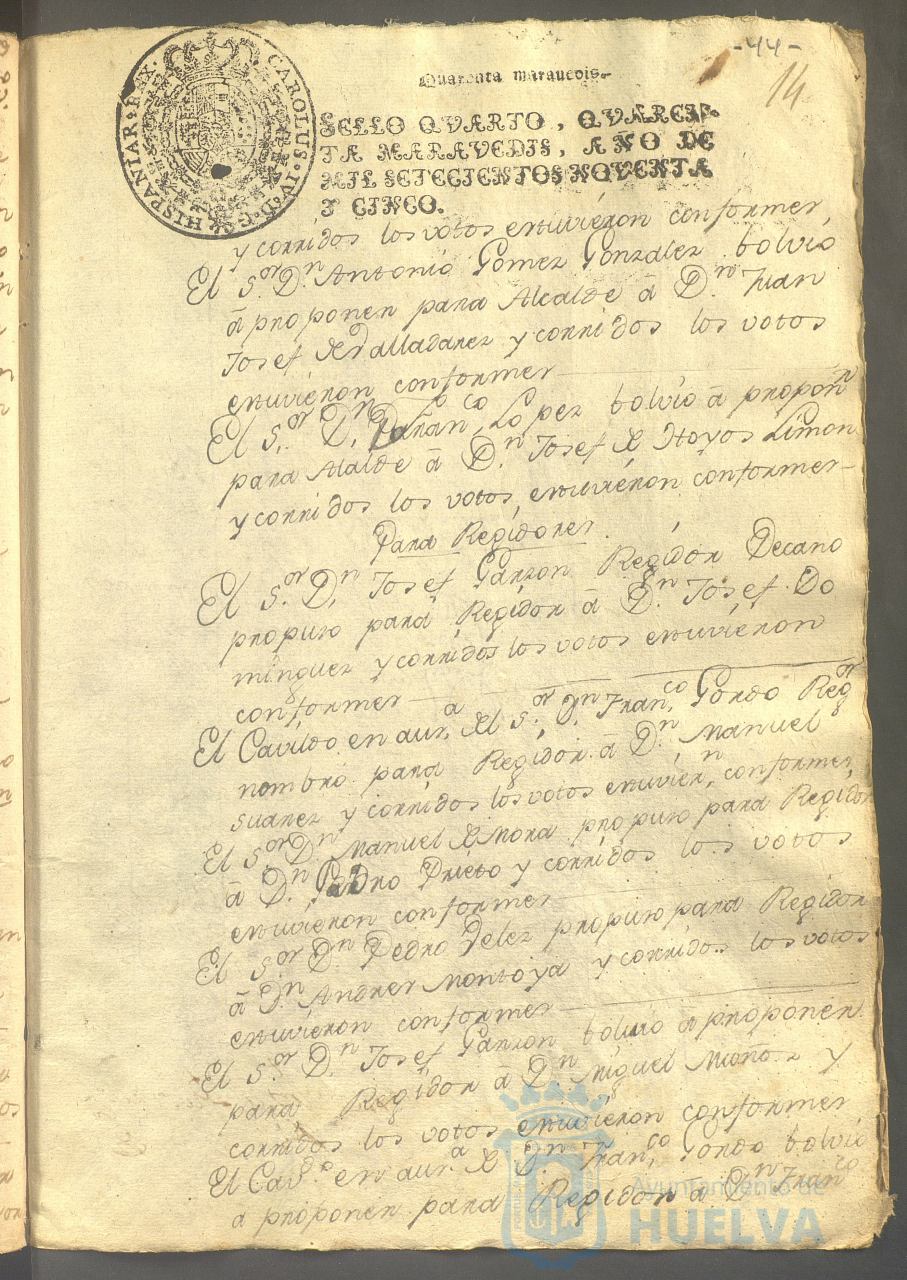 -44-
14
CAROLUS·IV·D·G·HISPANIAR·REX·
Quarenta marauedis.
SELLO QVARTO, QVAREN-
TA MARAVEDIS, AÑO DE
MIL SETECIENTOS NOVENTA
Y CINCO.
y corridos los votos estuvieron conformes,
El S.or D.n Antonio Gomez Gonzalez bolvio
á proponer para Alcalde á D.n Juan
Josef de Valladares y corridos los votos
estuvieron conformes
El S.or D.n Fran.co Lopez bolvio á propon.r
para Alcalde á D.n Josef de Hoyos Limon
y corridos los votos estuvieron conformes
Para Regidores
El S.or D.n Josef Garzon Regidor Decano
propuso para Regidor á D.n Josef Do
minguez y corridos los votos estuvieron
conformes
El Cavildo en aus.a del S.or D.n Fran.co Gordo Reg.or
nombro para Regidor á D.n Manuel
Suarez y corridos los votos estuvier.n conformes
El S.or D.n Manuel de Mora propuso para Regidor
á D.n Pedro Prieto y corridos los votos
estuvieron conformes
El S.or D.n Pedro Velez propuso para Regidor
á D.n Andres Montoya y corridos los votos
estuvieron conformes
El S.or D.n Josef Garzon bolvio á proponer
para Regidor á D.n Miguel y
corridos los votos estuvieron conformes,
El Cav.do en aus.a de D.n Fran.co Gordo bolvio
a proponer para Regidor á D.n Fran.co
Ayuntamiento de
HUELVA